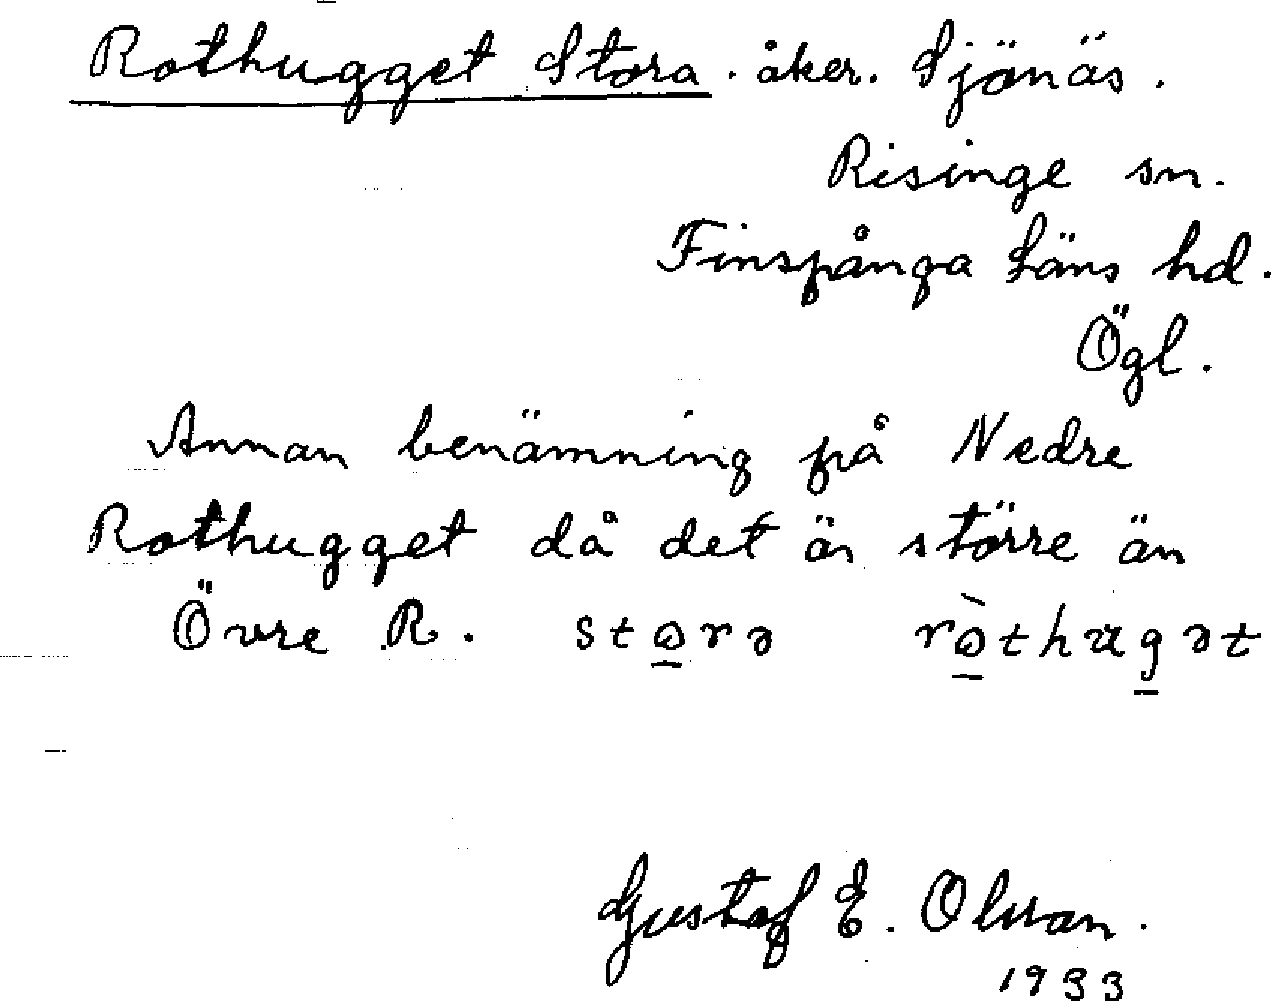 Rothugget Stora. åker. Sjönäs.
Risinge sn.
Finspånga Läns hd.
Ögl.
Annan benämning på Nedre
Rothugget då det är större än
Övre R.
Gustaf E. Olsson.
1933